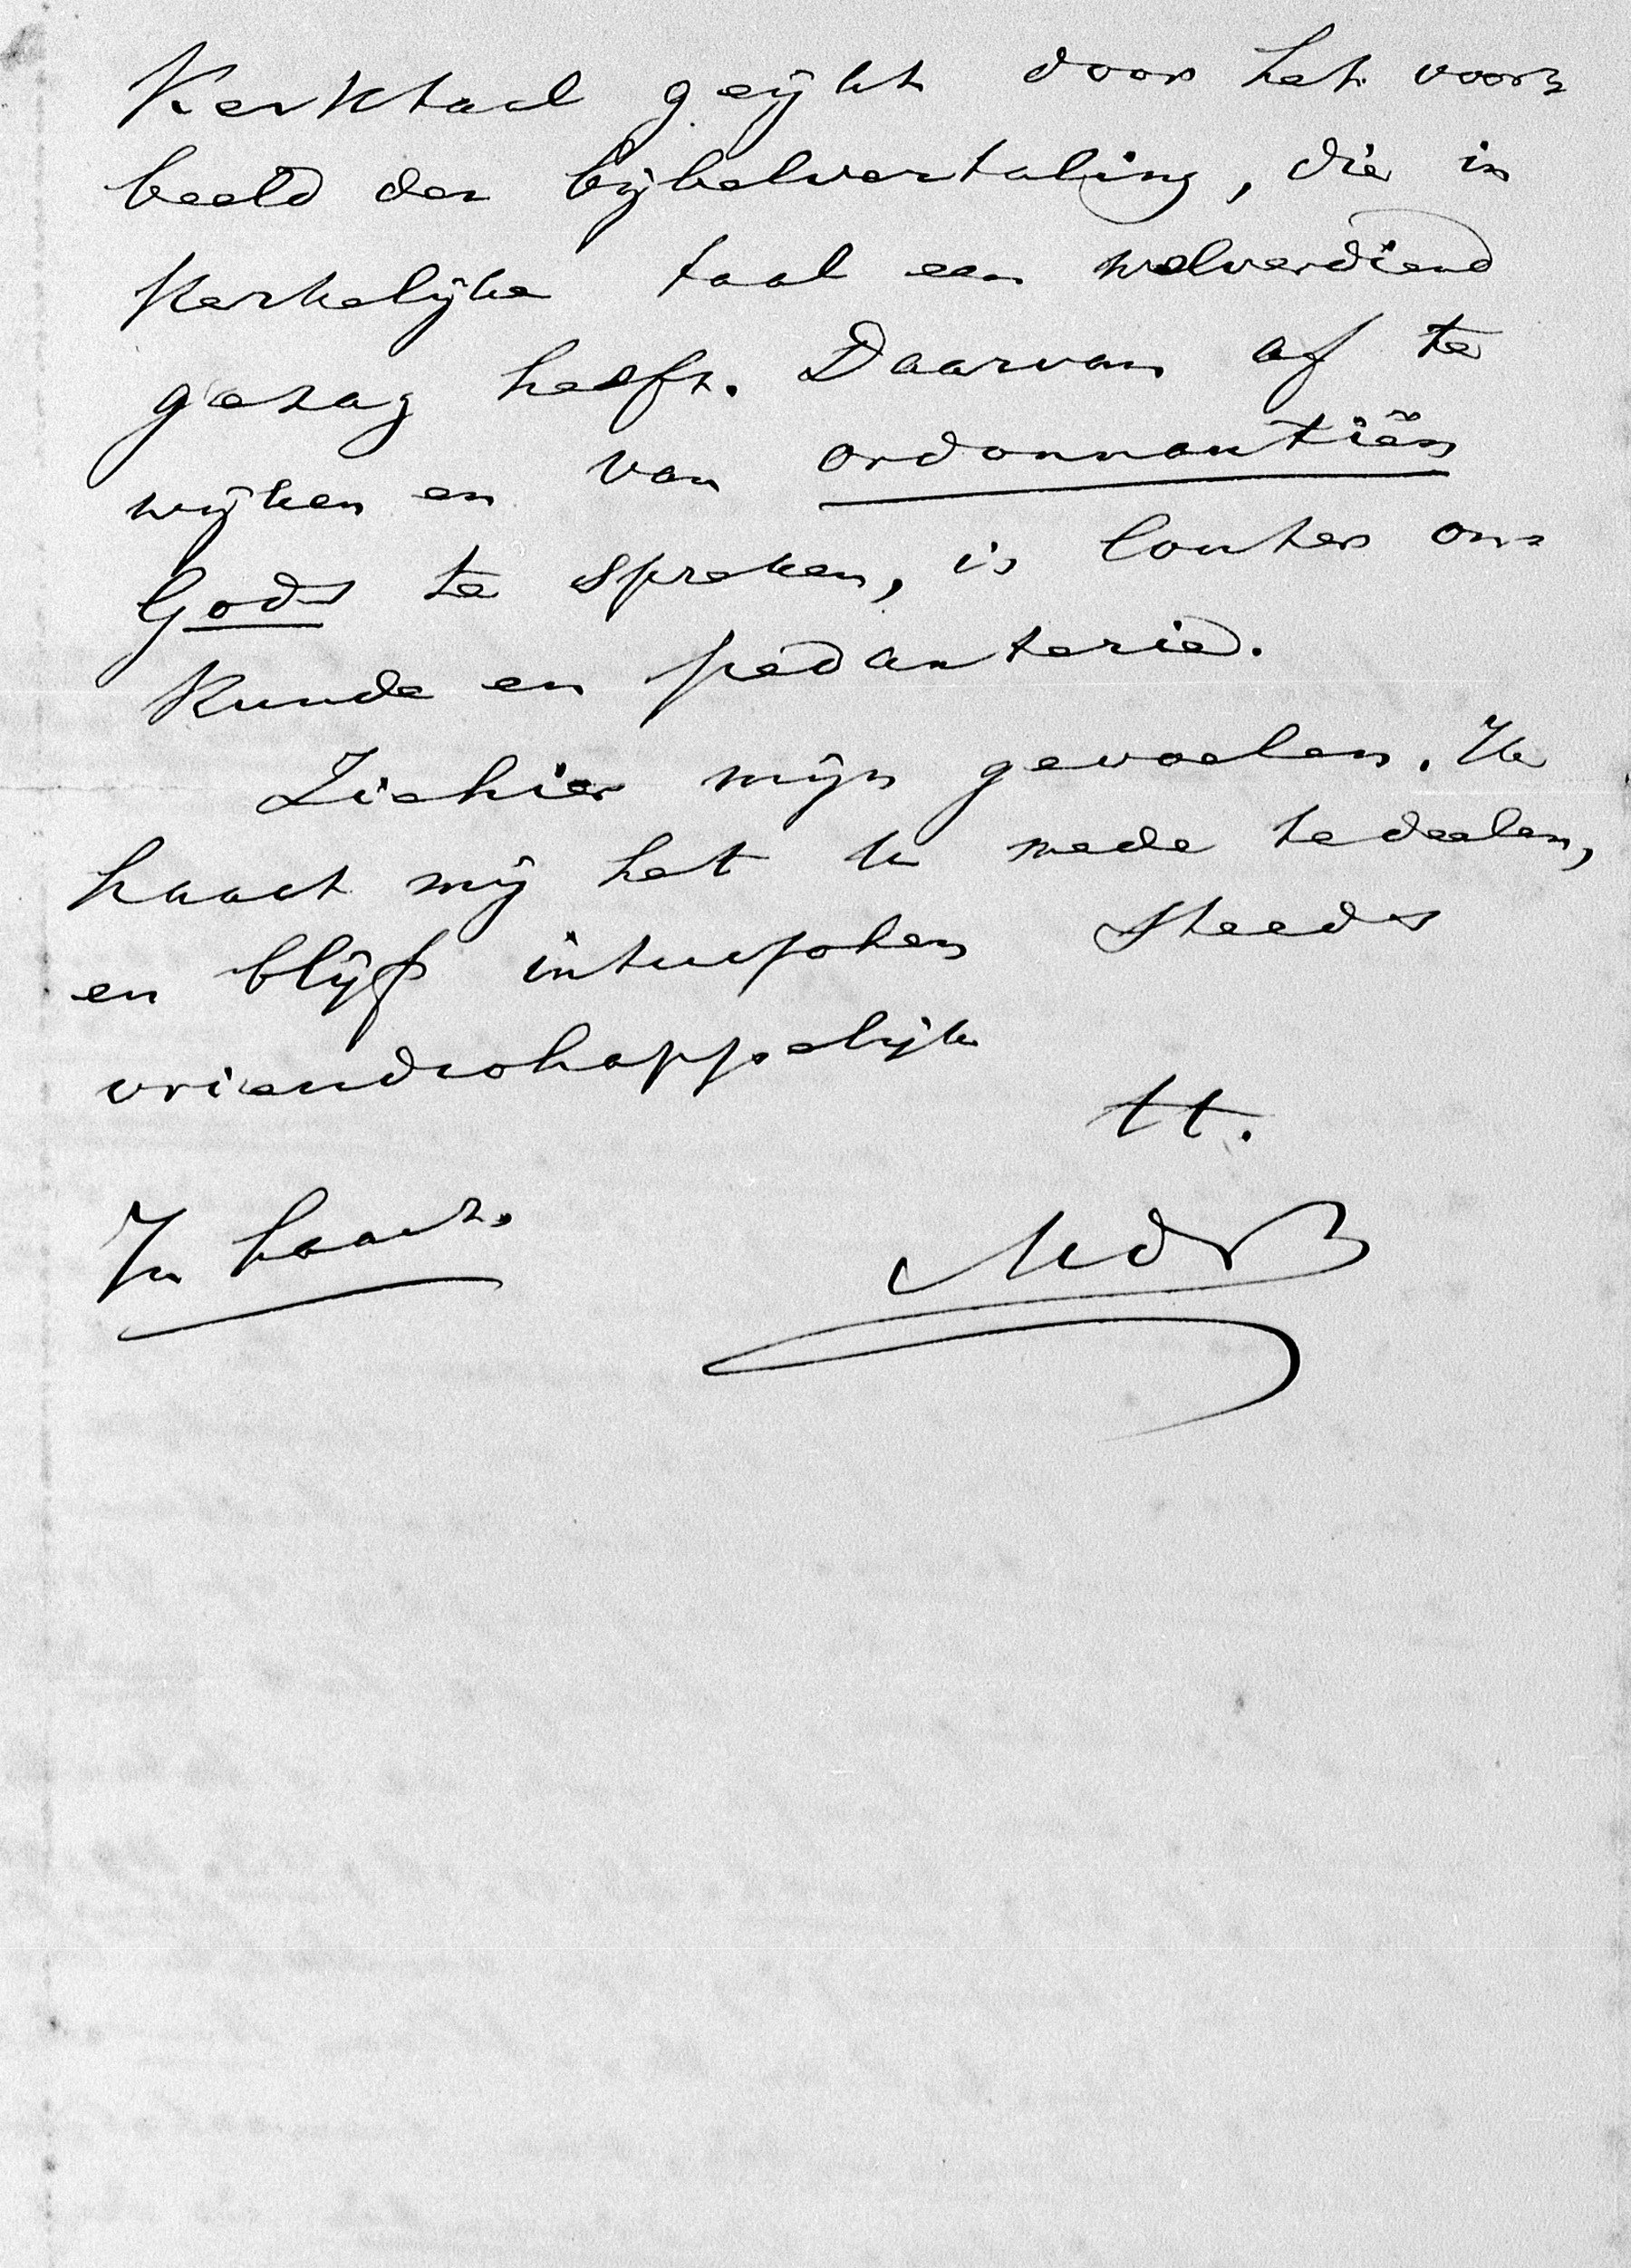 Kerktaal geijkt door het voor=
beeld der bijbelvertaling, die in
Kerkelijke taal een welverdiend
gezag heeft. Daarvan af te
wijken en van ordonnantiën
Gods te spreken, is louter on=
Kunde en pedanterie.
Ziehier mijn gevoelen. Ik
haast mij het U mede te deelen,
en blijf intusschen steeds
vriendschappelijk
tt.
In haast.
MdV